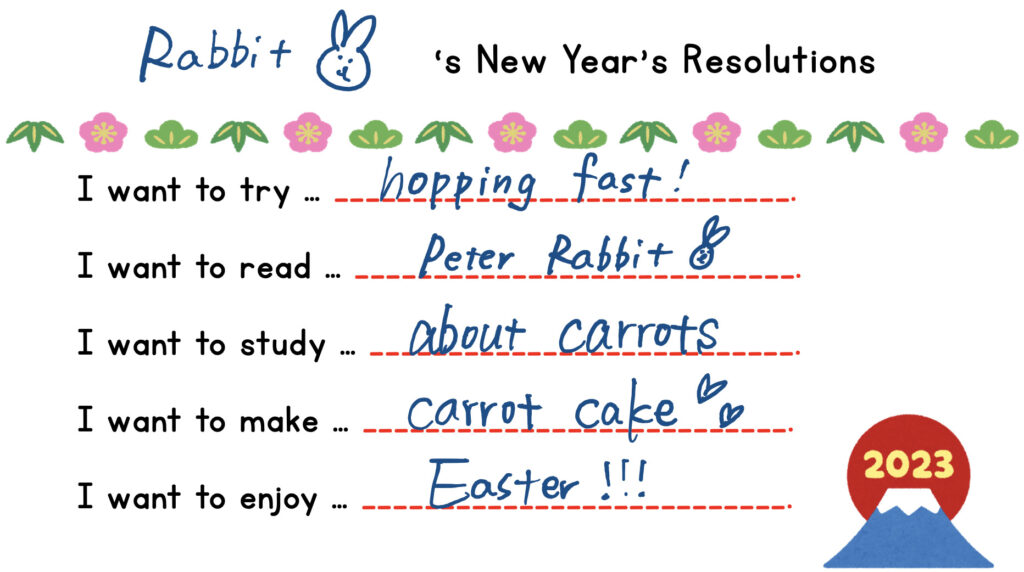 Rabbit 's New Year's Resolutions
I want to try ... hopping fast!
I want to read ... Peter Rabbit
I want to study ... about carrots
I want to make ... carrot cake
I want to enjoy ... Easter!!!
2023